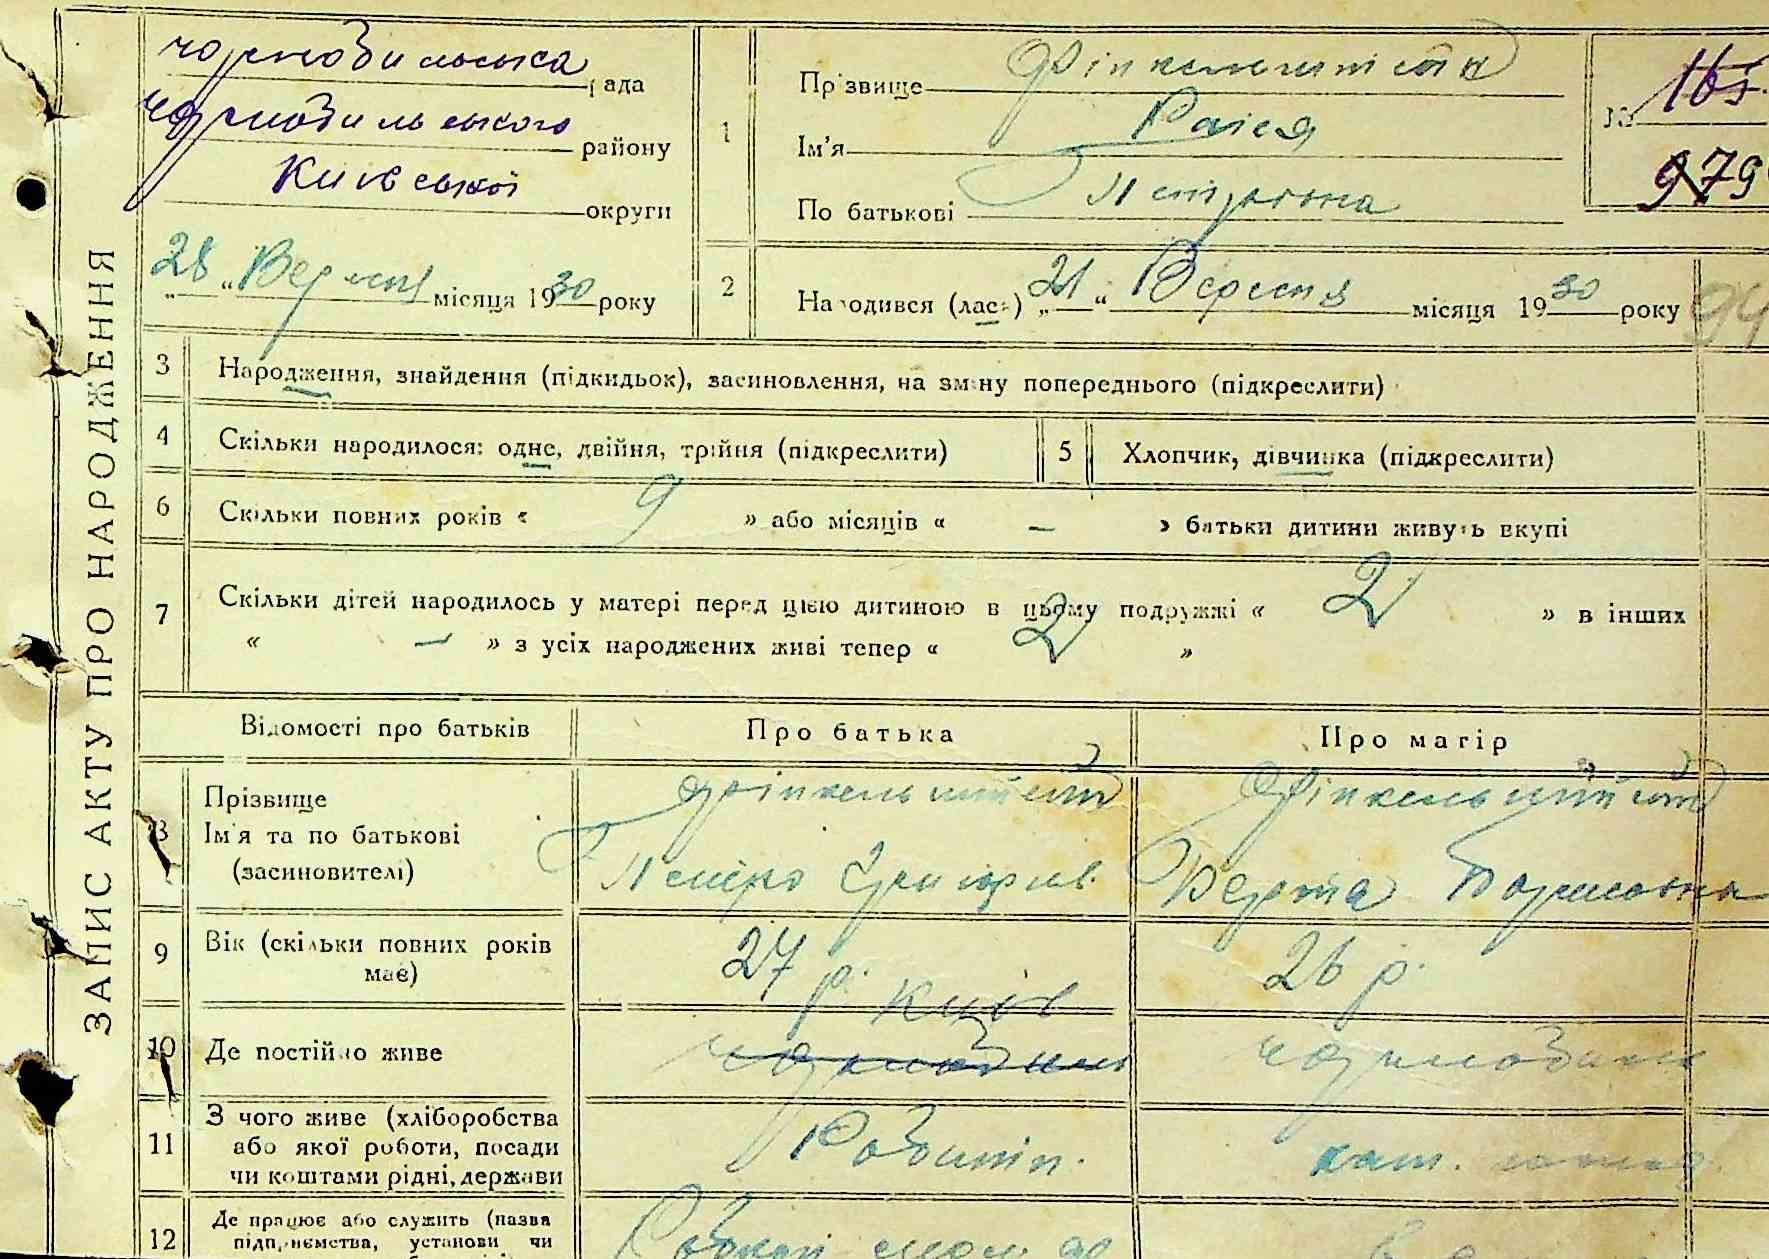 ЗАПИС АКТУ ПРО НАРОДЖЕННЯ
Чорнобильська рада
Чорнобильського району
Київської округи
„28“ Вересня місяця 1930 року
1
Прізвище
Ім'я Раіся
По батькові Петровна
№ 165
979
2
Народився (лась) „21“ Вересня місяця 1930 року
94
3
Народження, знайдення (підкидьок), засиновлення, на зміну попереднього (підкреслити)
4
Скільки народилося: одне, двійня, трійня (підкреслити)
5
Хлопчик, дівчинка (підкреслити)
6
Скільки повних років « 9 » або місяців « — » батьки дитини живуть вкупі
7
Скільки дітей народилось у матері перед цією дитиною в цьому подружжі « 2 » в інших
« — » з усіх народжених живі тепер « 2 »
Відомості про батьків
Про батька
Про матір
8
Прізвище
Ім'я та по батькові
(засиновителі)
Фінкельштейн
Петро Григорів.
Фінкельштейн
Берта Борисовна
9
Вік (скільки повних років
має)
27 р.
26 р.
10
Де постійно живе
Київ
Чорнобиль
Чорнобиль
11
З чого живе (хліборобства
або якої роботи, посади
чи коштами рідні, держави
Робітн.
12
Де працює або служить (назва
підприємства, установи чи